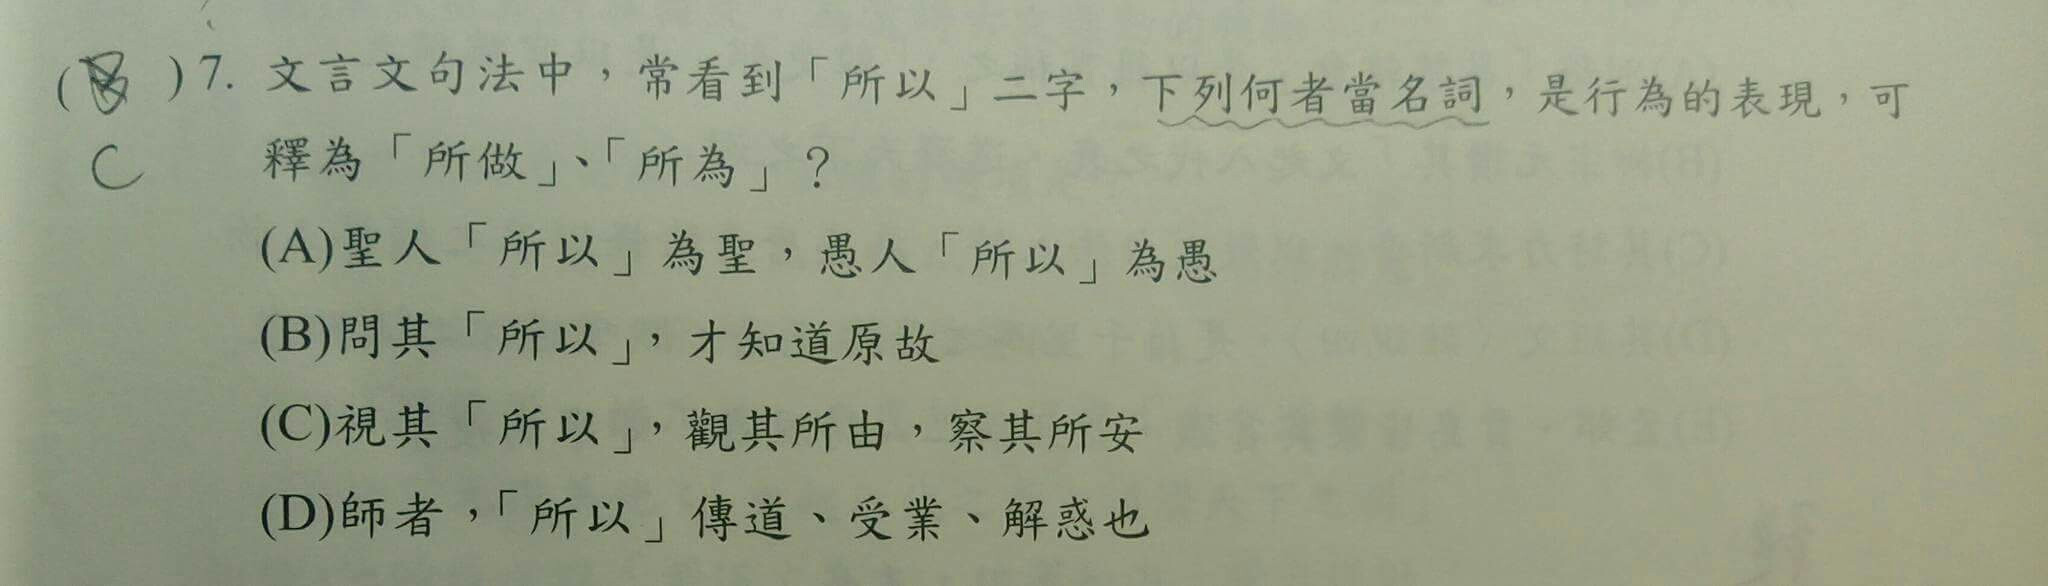 ( )7. 文言文句法中，常看到「所以」二字，下列何者當名詞，是行為的表現，可
C 釋為「所做」、「所為」？
(A)聖人「所以」為聖，愚人「所以」為愚
(B)問其「所以」，才知道原故
(C)視其「所以」，觀其所由，察其所安
(D)師者，「所以」傳道、受業、解惑也